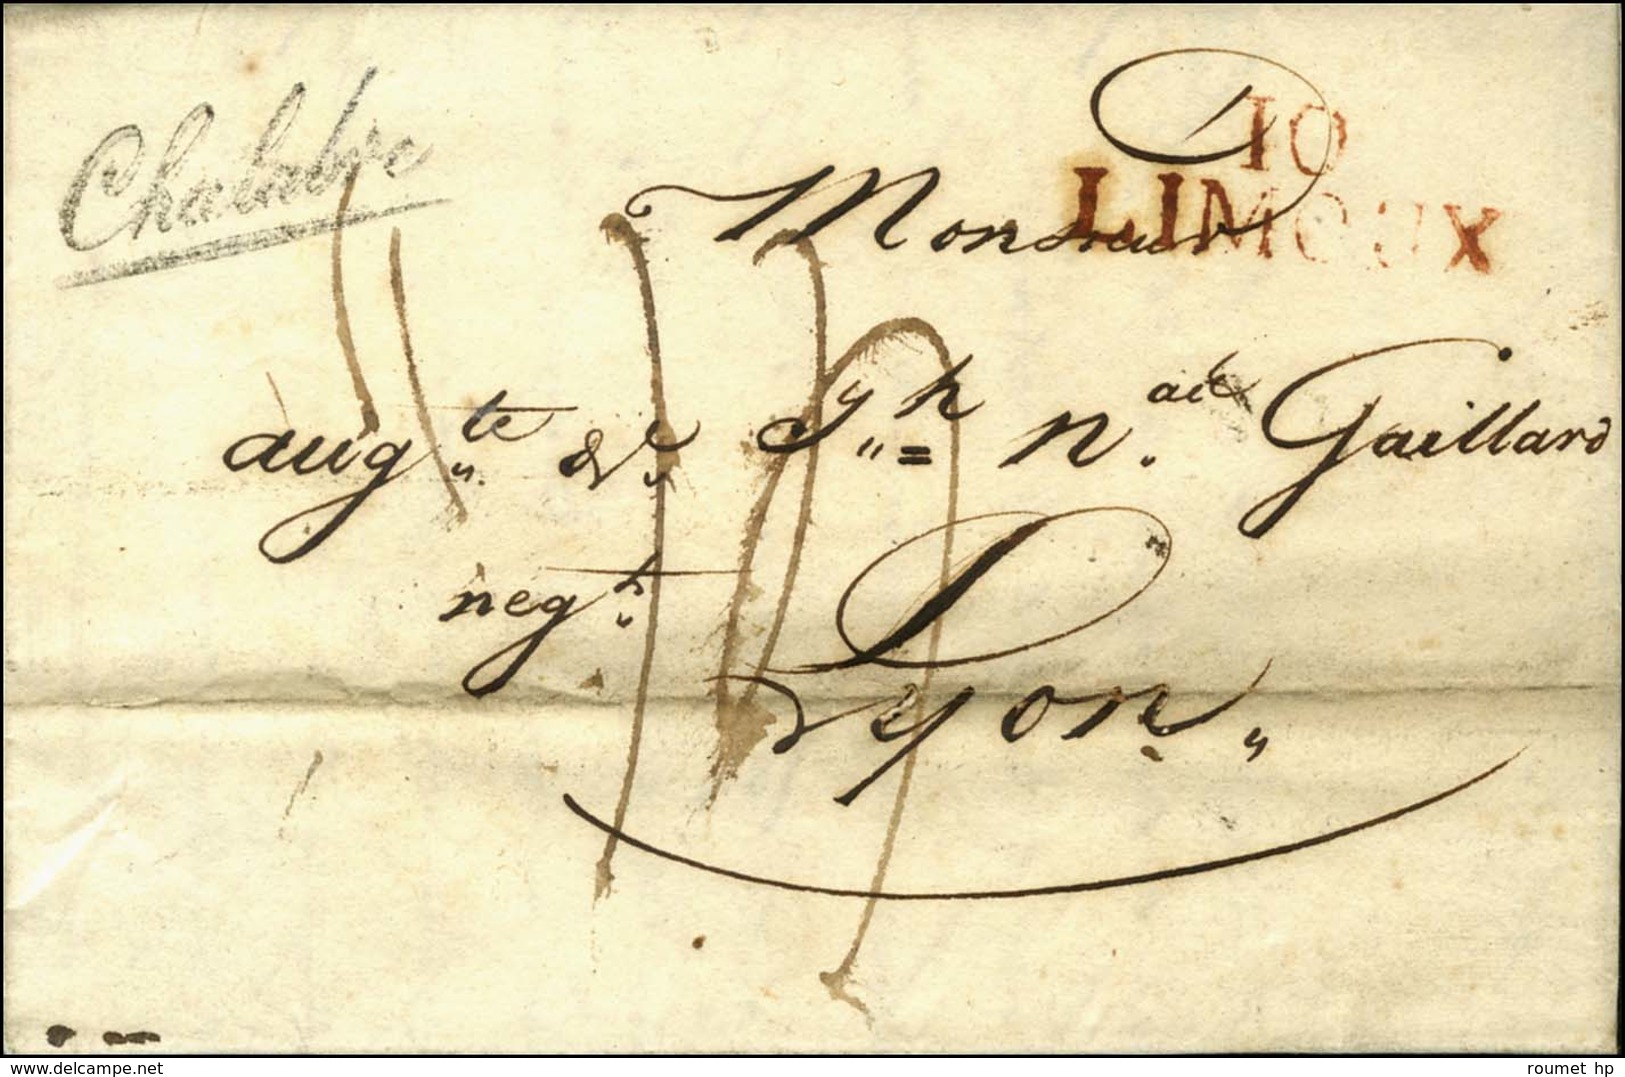 Chalabre
10
LIMOUX
Monsieur
aug.te & Jph n. Gaillard
negt.
Lyon
delcampe.net
roumet hp